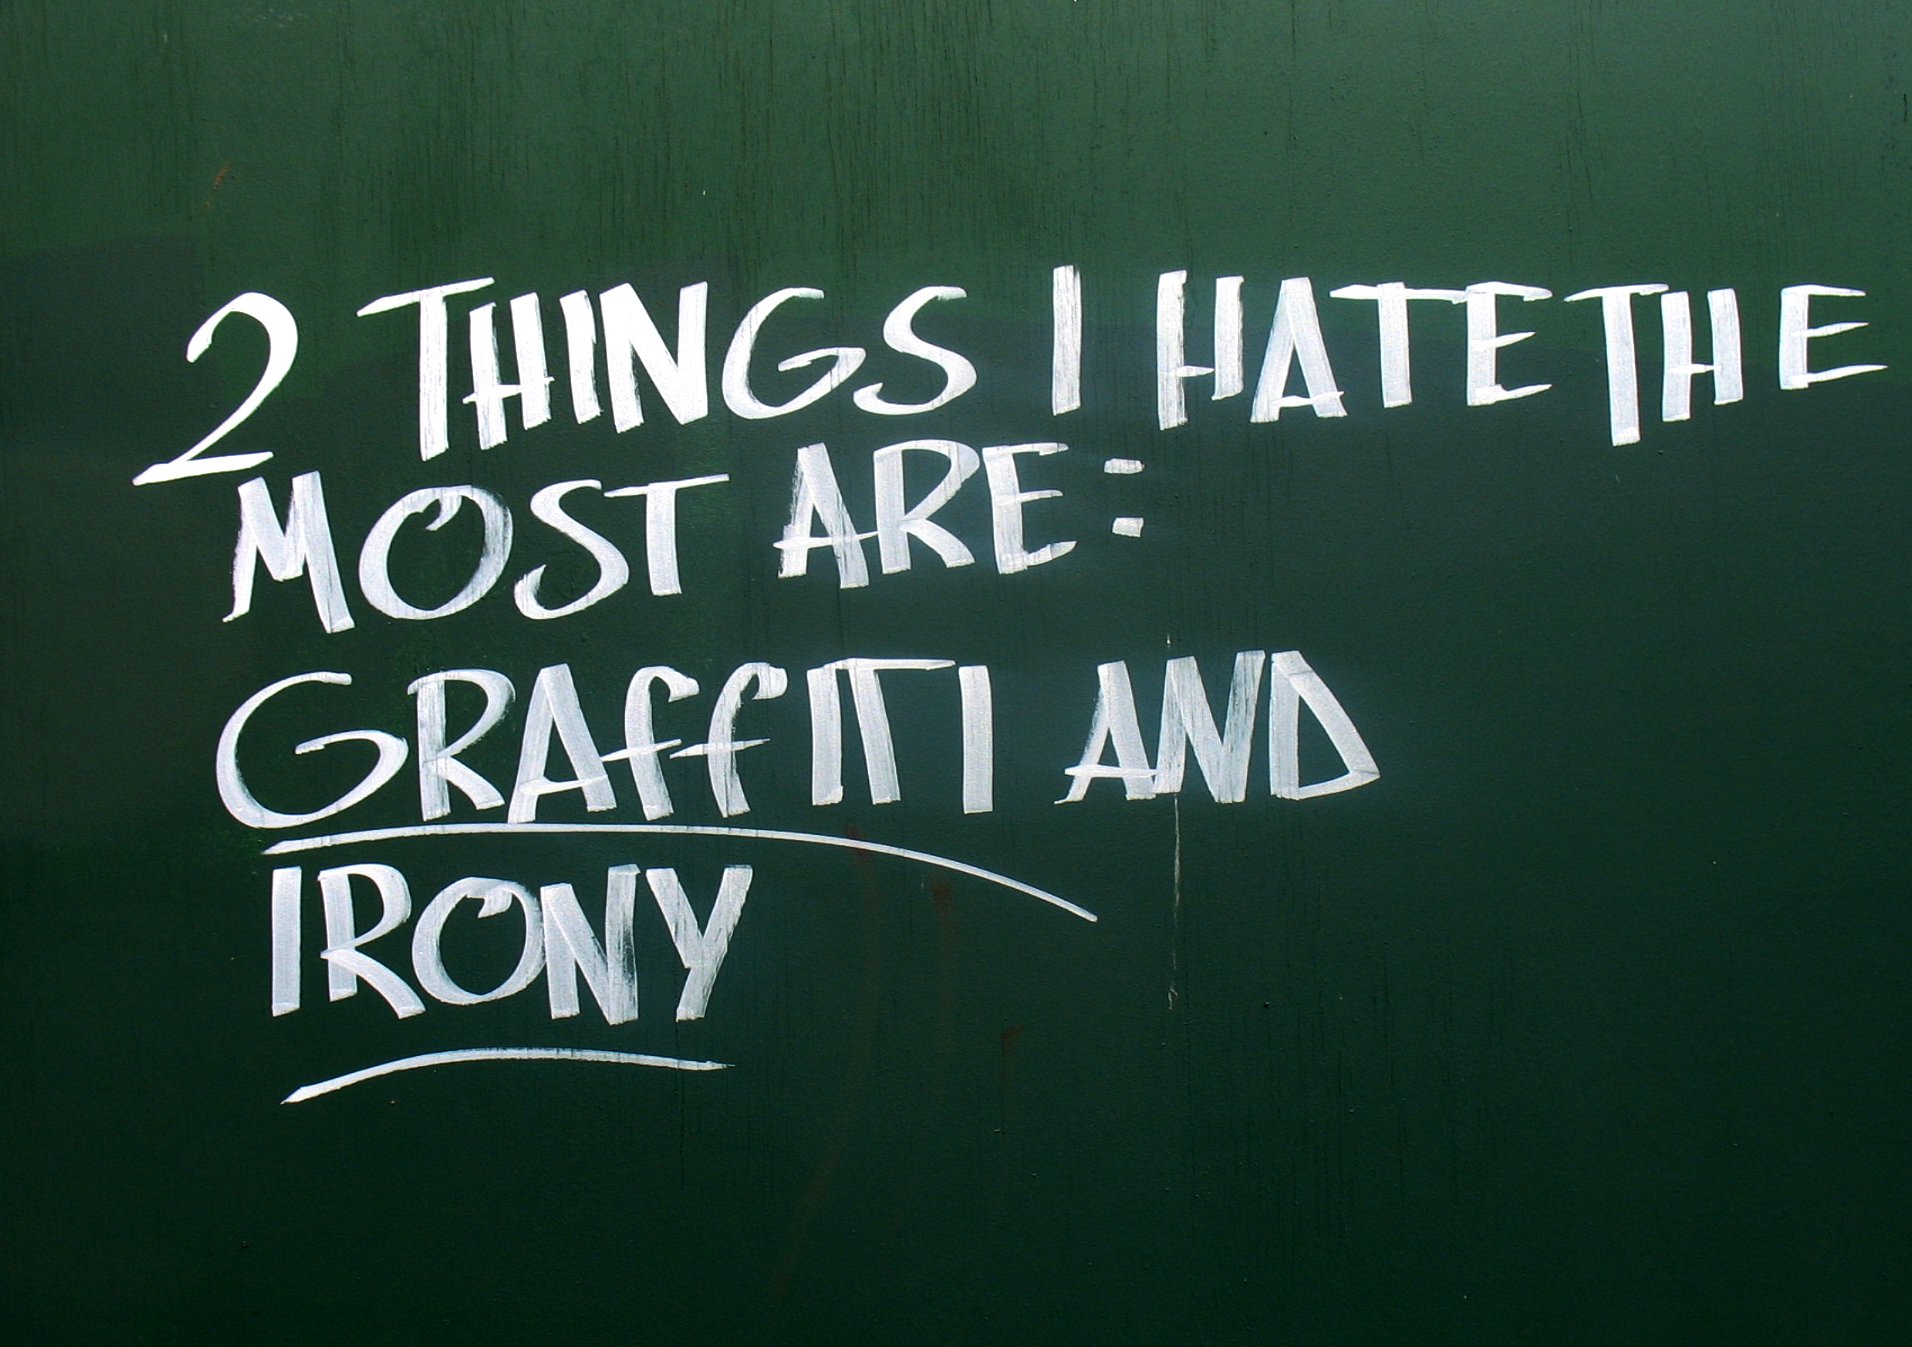 2 THINGS I HATE THE
MOST ARE:
GRAFFITI AND
IRONY